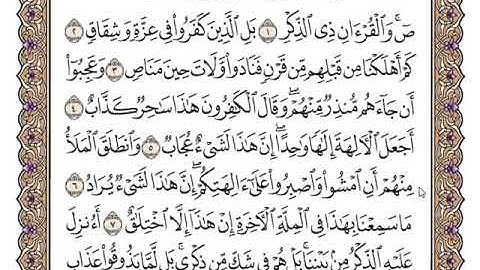 صٓۚ وَٱلْقُرْءَانِ ذِى ٱلذِّكْرِ ١ بَلِ ٱلَّذِينَ كَفَرُوا۟ فِى عِزَّةٍ وَشِقَاقٍ ٢
كَمْ أَهْلَكْنَا مِن قَبْلِهِم مِّن قَرْنٍ فَنَادَوا۟ وَّلَاتَ حِينَ مَنَاصٍ ٣ وَعَجِبُوٓا۟
أَن جَآءَهُم مُّنذِرٌ مِّنْهُمْۖ وَقَالَ ٱلْكَٰفِرُونَ هَٰذَا سَٰحِرٌ كَذَّابٌ ٤
أَجَعَلَ ٱلْءَالِهَةَ إِلَٰهًا وَٰحِدًاۖ إِنَّ هَٰذَا لَشَىْءٌ عُجَابٌ ٥ وَٱنطَلَقَ ٱلْمَلَأُ
مِنْهُمْ أَنِ ٱمْشُوا۟ وَٱصْبِرُوا۟ عَلَىٰٓ ءَالِهَتِكُمْۖ إِنَّ هَٰذَا لَشَىْءٌ يُرَادُ ٦
مَا سَمِعْنَا بِهَٰذَا فِى ٱلْمِلَّةِ ٱلْءَاخِرَةِ إِنْ هَٰذَآ إِلَّا ٱخْتِلَٰقٌ ٧ أَءُنزِلَ
عَلَيْهِ ٱلذِّكْرُ مِنۢ بَيْنِنَاۚ بَلْ هُمْ فِى شَكٍّ مِّن ذِكْرِىۖ بَل لَّمَّا يَذُوقُوا۟ عَذَابِ